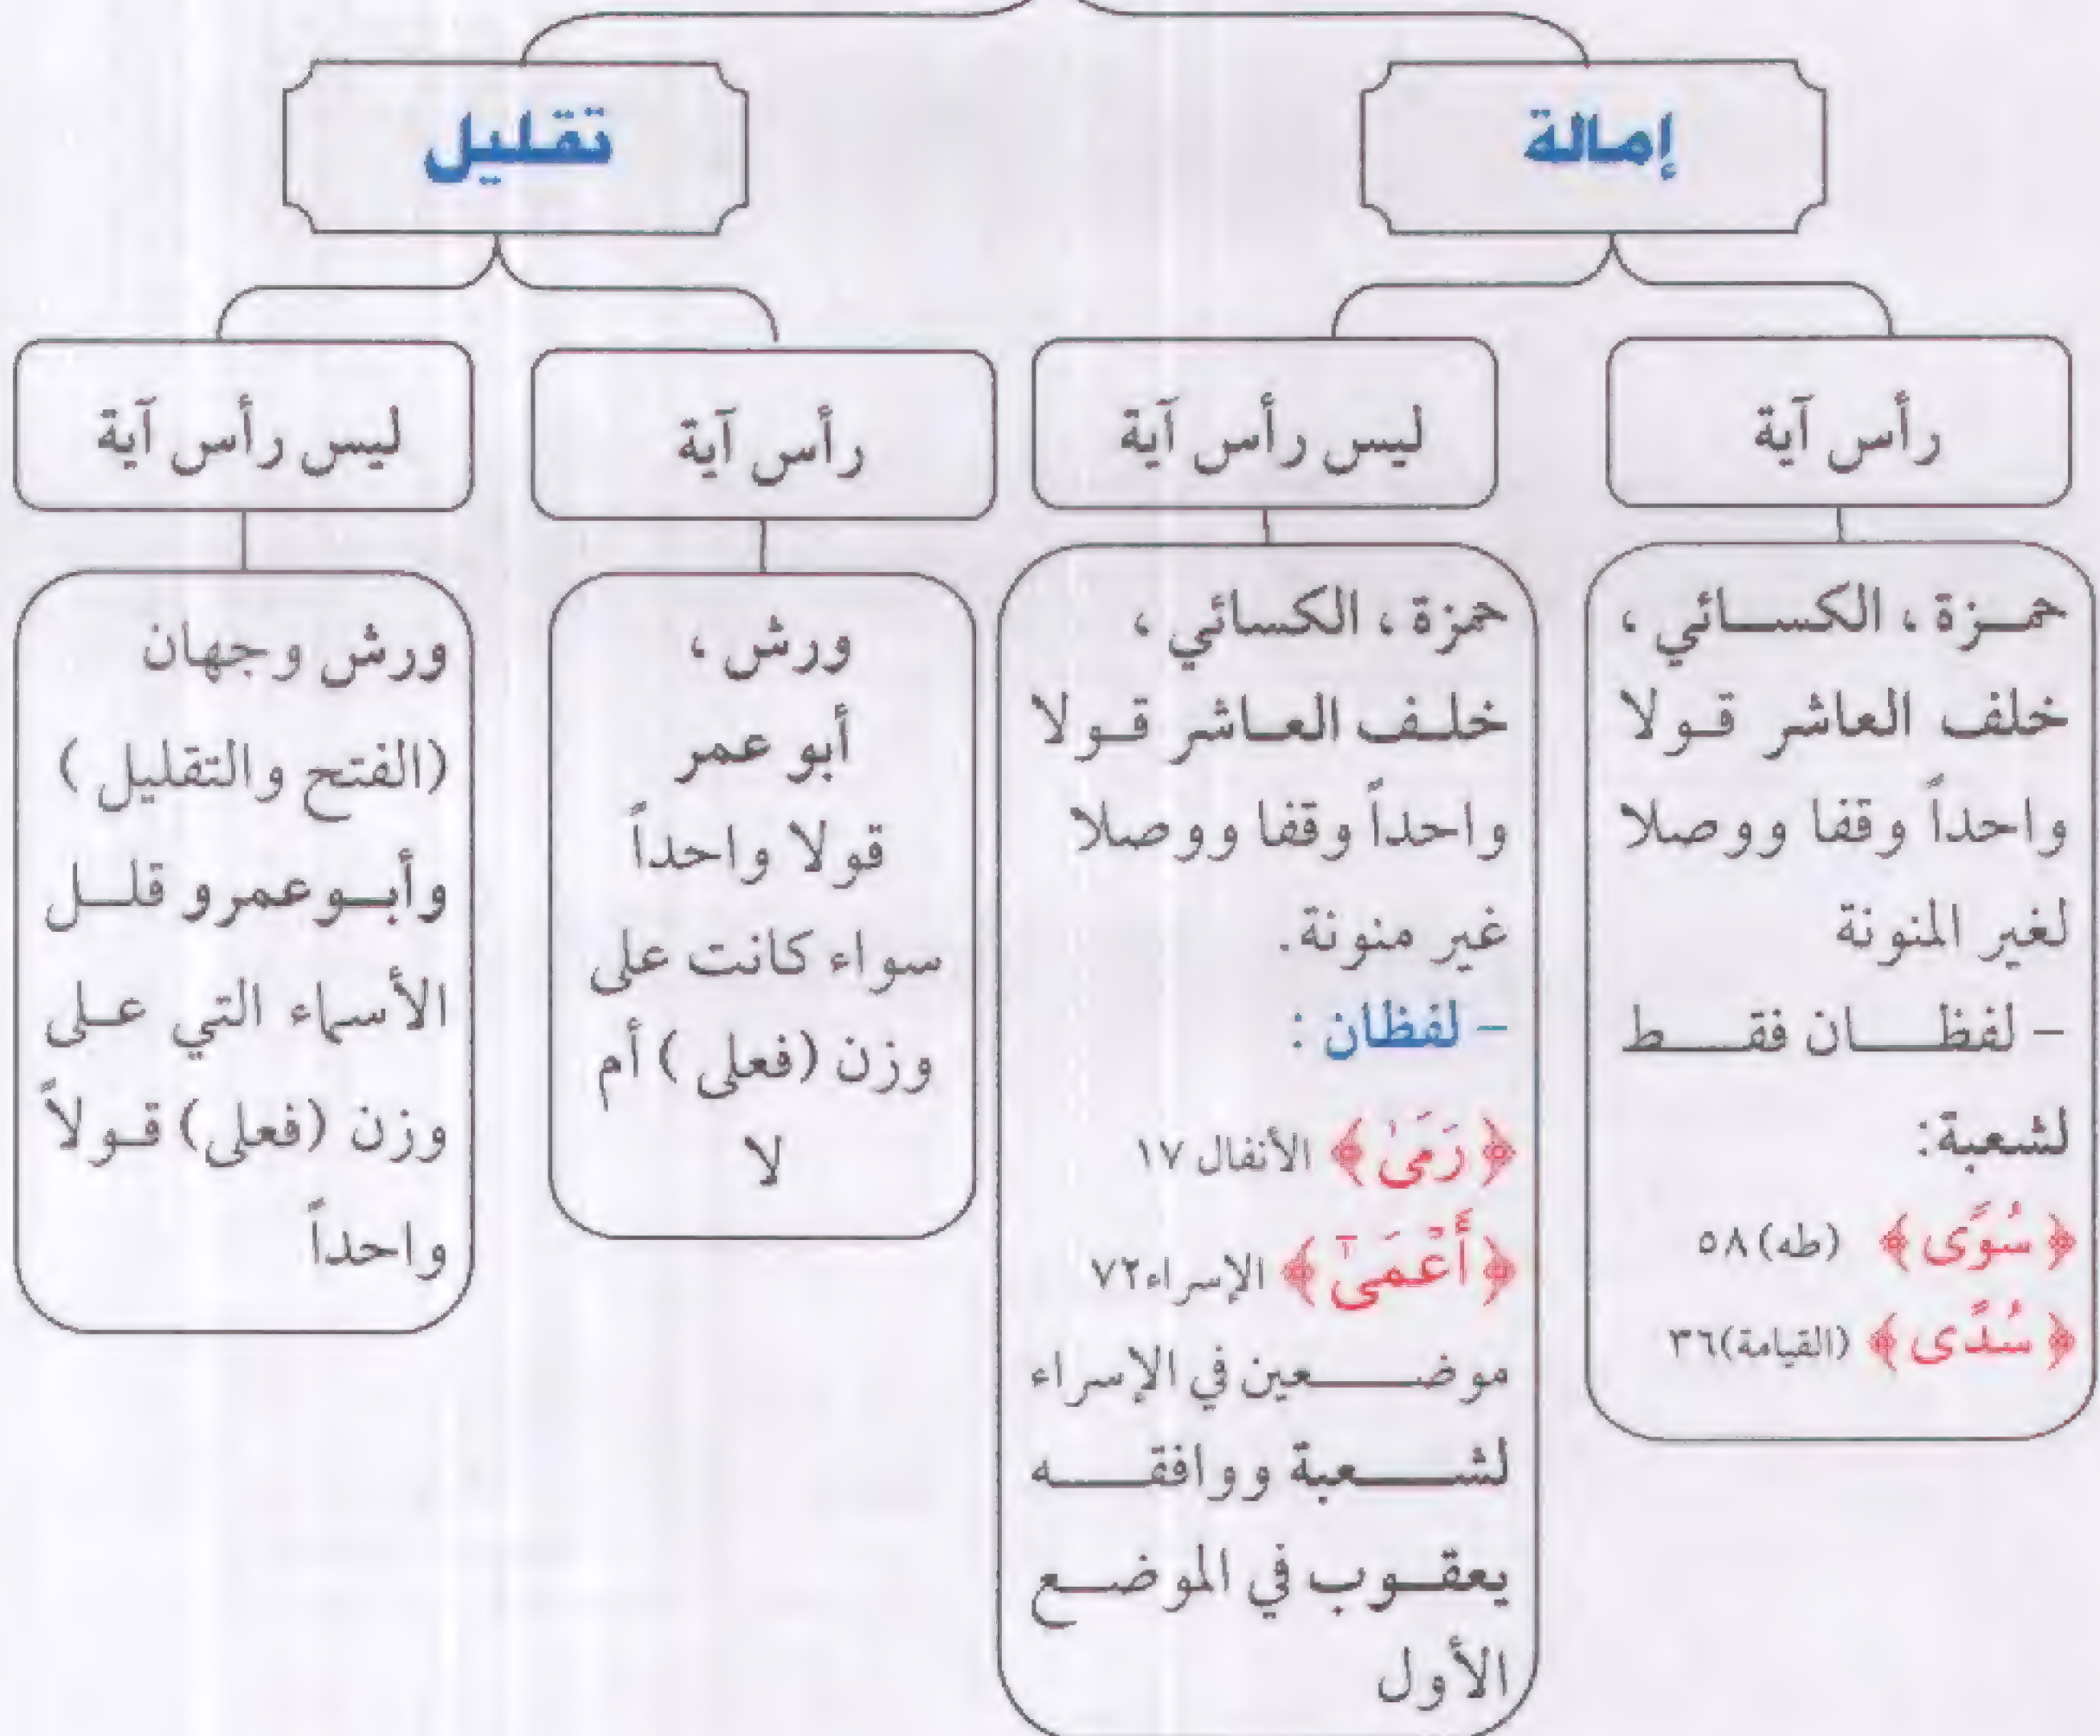 إمالة
تقليل
رأس آية
ليس رأس آية
رأس آية
ليس رأس آية
حمـزة ، الكسـائي ،
خلف العاشر قـولا
واحداً وقفا ووصلا
لغير المنونة
- لفظـــان فقـــط
لشعبة:
﴿ سُوًى ﴾ (طه) ٥٨
﴿ سُدًى ﴾ (القيامة) ٣٦
حمزة ، الكسائي ،
خلـف العـاشر قـولا
واحداً وقفا ووصلا
غير منونة.
- لفظان :
﴿ رَمَىٰ ﴾ الأنفال ١٧
﴿ أَعْمَىٰٓ ﴾ الإسراء ٧٢
موضـــعين في الإسراء
لشـــعبة ووافقـــه
يعقـوب في الموضـع
الأول
ورش ،
أبو عمر
قولا واحداً
سواء كانت على
وزن (فعلى ) أم
لا
ورش وجهان
(الفتح والتقليل )
وأبـو عمرو قلـل
الأسماء التي عـلى
وزن (فعلى) قـولاً
واحداً